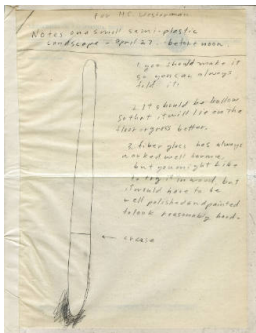 For H.C. Westerman
Notes and small semi-plastic
Landscape - April 27 - before noon
1. you should make it
so you can always
fold it
2. It should be hollow
so that it will lie on the
floor or grass better.
3. fiber glass has always
worked well for me,
but you might like
to try it in wood, but
it would have to be
well polished and painted
to look reasonably hard.
crease